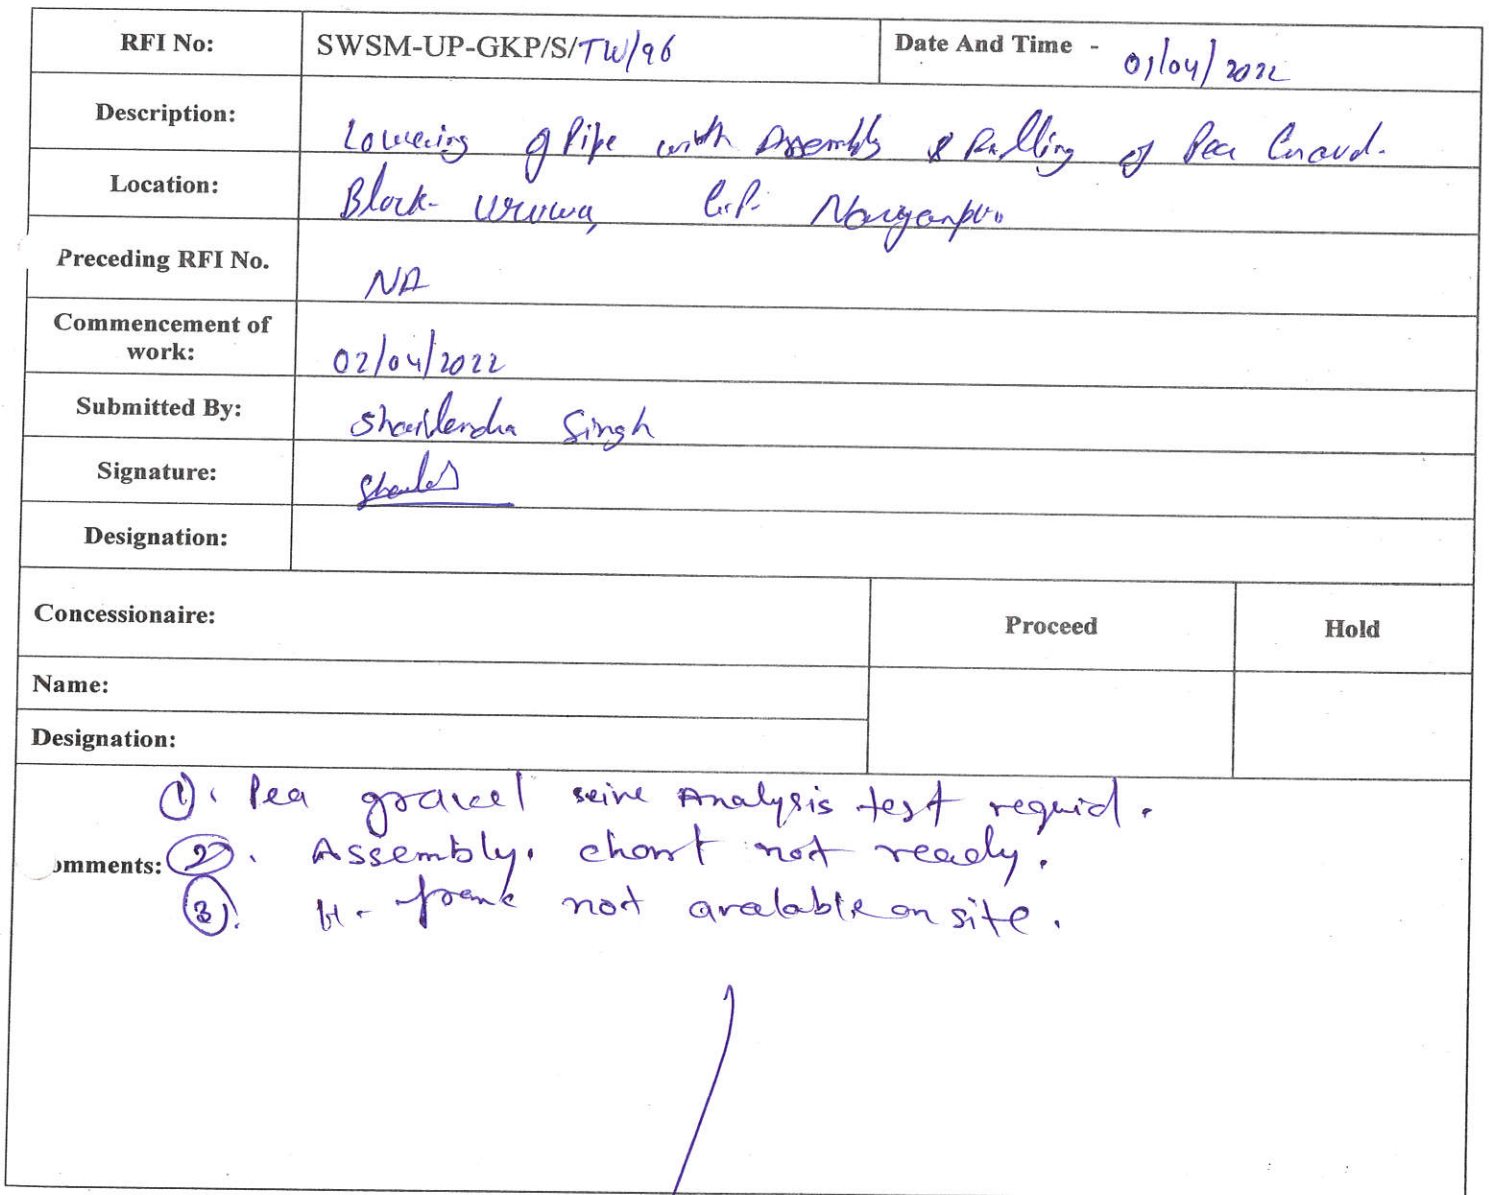 RFI No: SWSM-UP-GKP/S/TW/96 Date And Time - 01/04/2022
Description: Lowering of Pipe with Assembly & Pulling of Pea
Location: Block- Uruwa, G.P.
Preceding RFI No. NA
Commencement of
work: 02/04/2022
Submitted By: Singh
Signature:
Designation:
Concessionaire: Proceed Hold
Name:
Designation:
1). Pea gravel seive Analysis test requid.
omments: 2). Assembly. chart not ready.
3). H- frame not avalable on site.